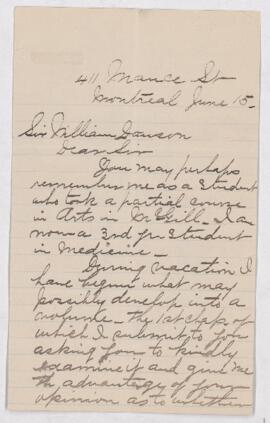 411 Mance St
Montreal June 15-
Sir William Dawson
Dear Sir
You may perhaps
remember me as a Student
who took a partial course
in Arts in McGill - I am
now a 3rd yr Student
in Medicine -
During vacation I
have begun what may
possibly develop into a
volume - the 1st chap. of
which I submit to you
asking you to kindly
examine it and give me
the advantage of your
opinion as to whether